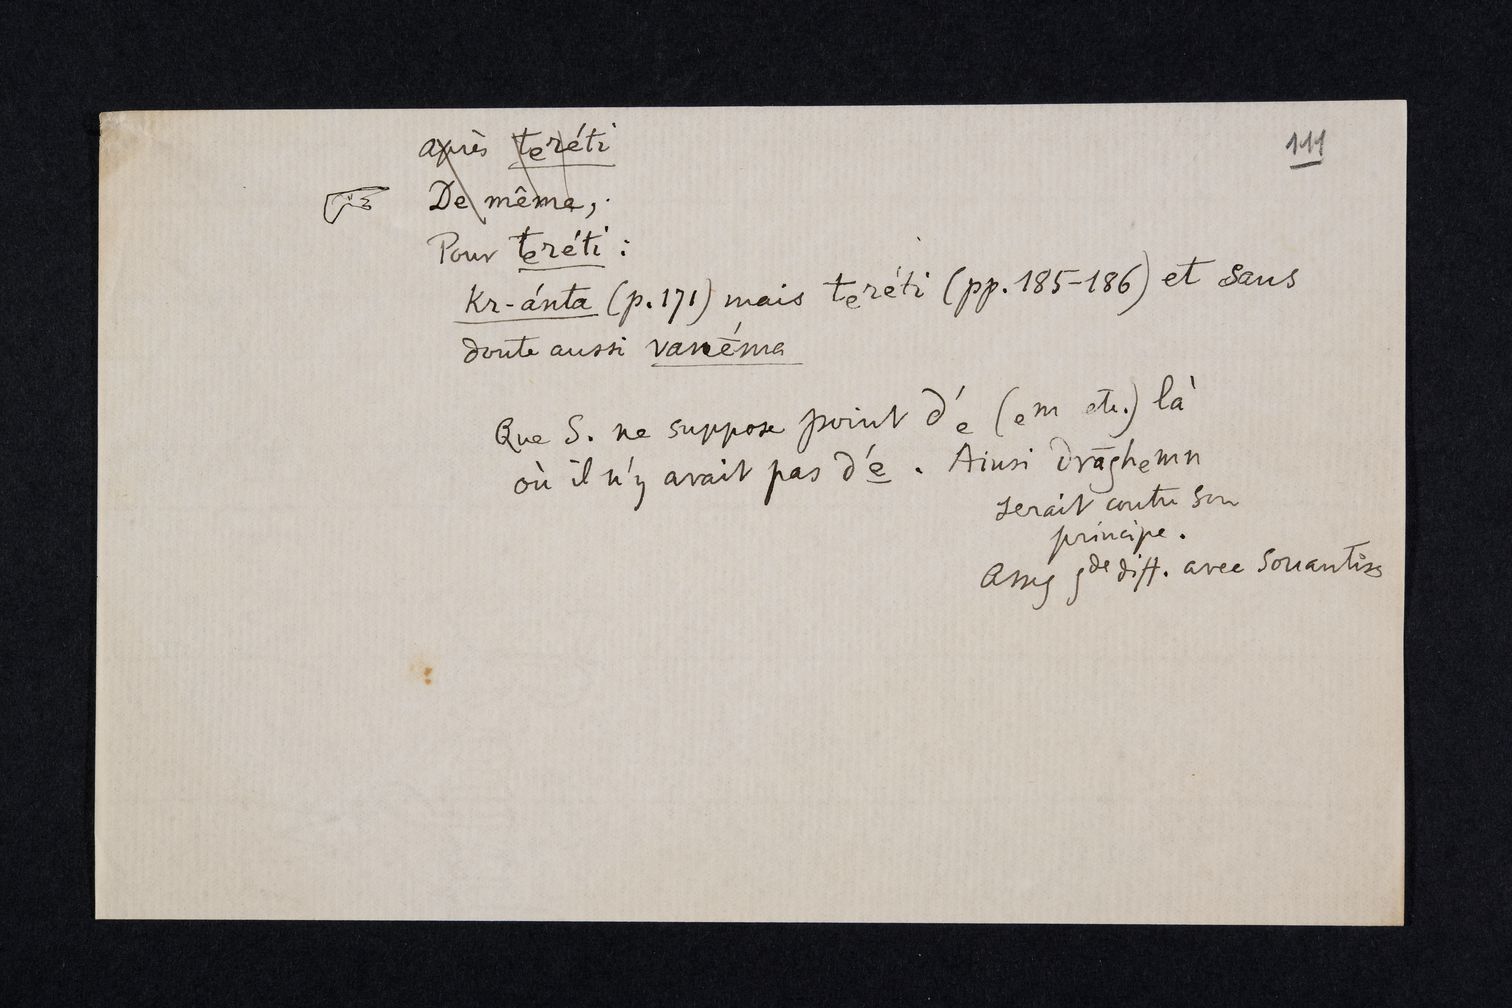 111
après tₑréti
De même,
Pour tₑréti :
Kr-ánta (p. 171) mais tₑréti (pp. 185-186) et sans
doute aussi vanéma
Que S. ne suppose point d'ₑ (ₑm etc.) là
où il n'y avait pas d'e. Ainsi drāghₑmn
serait contre son
principe.
Assez gde diff. avec Sonantiss